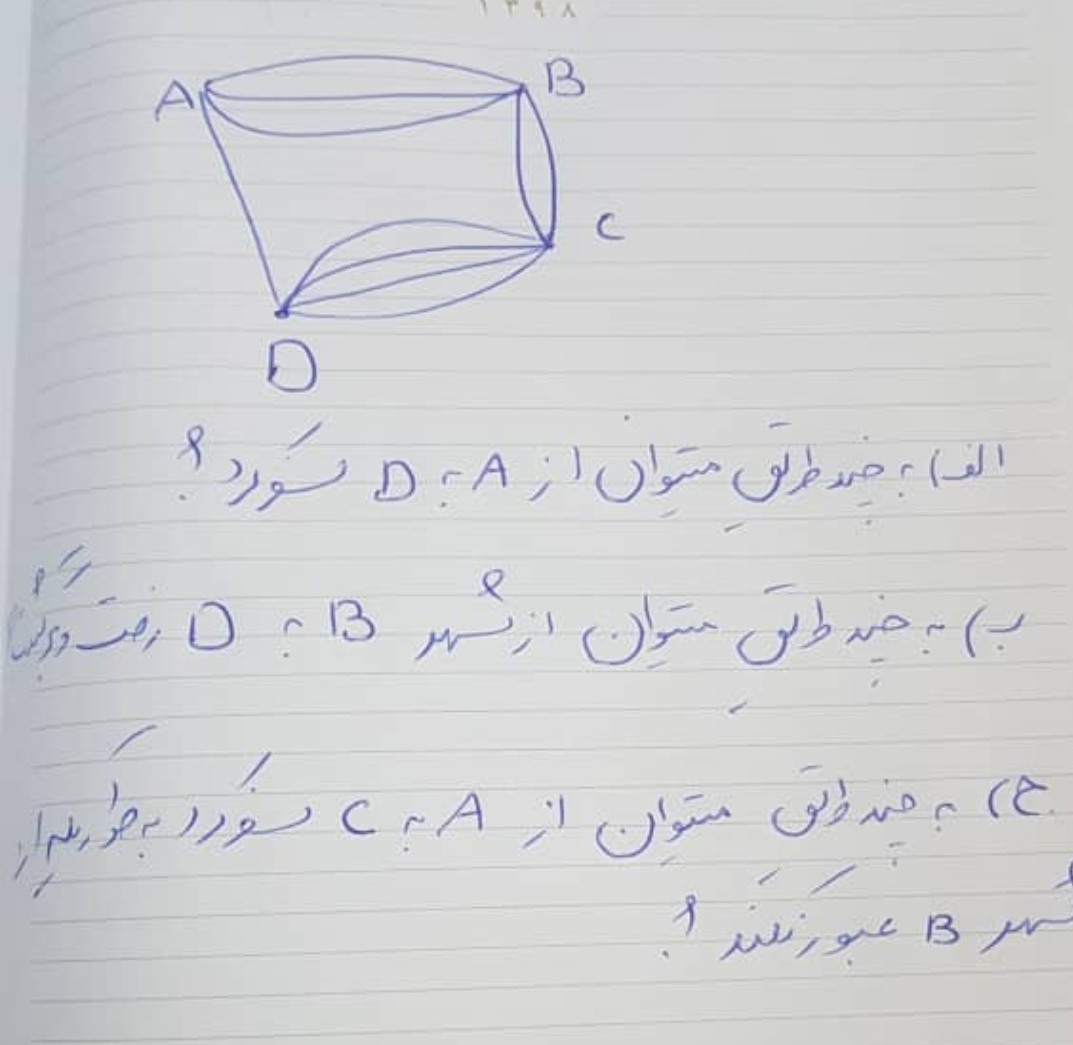 ۱۳۹۸
A
B
C
D
الف) به چند طریق میتوان از A به D سفر کرد؟
ب) به چند طریق میتوان از شهر B به D رفت و برگشت؟
ج) به چند طریق میتوان از A به C سفر کرد به طوریکه از
شهر B عبور نکند؟